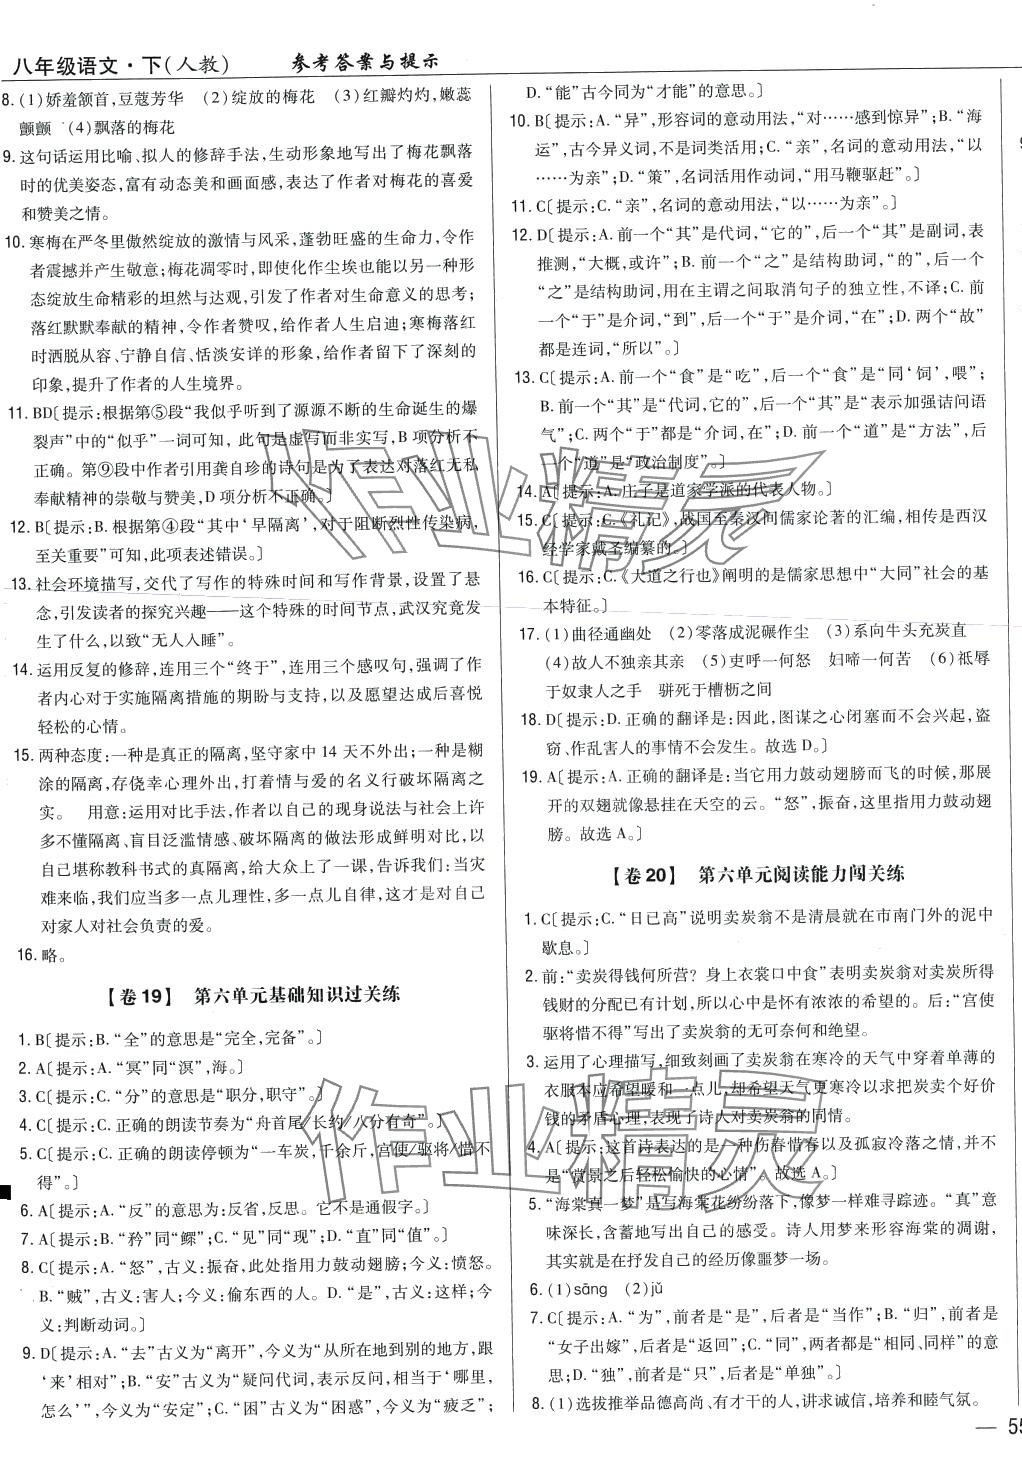 八年级语文·下(人教)　参考答案与提示
8. (1)娇羞颔首,豆蔻芳华　(2)绽放的梅花　(3)红瓣灼灼,嫩蕊
颤颤　(4)飘落的梅花
9. 这句话运用比喻、拟人的修辞手法,生动形象地写出了梅花飘落
时的优美姿态,富有动态美和画面感,表达了作者对梅花的喜爱
和赞美之情。
10. 寒梅在严冬里傲然绽放的激情与风采,蓬勃旺盛的生命力,令作
者震撼并产生敬意;梅花凋零时,即使化作尘埃也能以另一种形
态绽放生命精彩的坦然与达观,引发了作者对生命意义的思考;
落红默默奉献的精神,令作者赞叹,给作者人生启迪;寒梅落红
时洒脱从容、宁静自信、恬淡安详的形象,给作者留下了深刻的
印象,提升了作者的人生境界。
11. BD〔提示:根据第⑤段“我似乎听到了源源不断的生命诞生的爆
裂声”中的“似乎”一词可知, 此句是虚写而非实写,B 项分析不
正确。第⑨段中作者引用龚自珍的诗句是为了表达对落红无私
奉献精神的崇敬与赞美,D 项分析不正确。〕
12. B〔提示:B. 根据第④段“其中‘早隔离’,对于阻断烈性传染病,
至关重要”可知,此项表述错误。〕
13. 社会环境描写,交代了写作的特殊时间和写作背景,设置了悬
念,引发读者的探究兴趣——这个特殊的时间节点,武汉究竟发
生了什么,以致“无人入睡”。
14. 运用反复的修辞,连用三个“终于”,连用三个感叹句,强调了作
者内心对于实施隔离措施的期盼与支持,以及愿望达成后喜悦
轻松的心情。
15. 两种态度:一种是真正的隔离,坚守家中 14 天不外出;一种是糊
涂的隔离,存侥幸心理外出,打着情与爱的名义行破坏隔离之
实。　用意:运用对比手法,作者以自己的现身说法与社会上许
多不懂隔离、盲目泛滥情感、破坏隔离的做法形成鲜明对比,以
自己堪称教科书式的真隔离,给大众上了一课,告诉我们:当灾
难来临,我们当多一点儿理性,多一点儿自律,这才是对自己对
对家人对社会负责的爱。
16. 略。
【卷 19】　第六单元基础知识过关练
1. B〔提示:B. “全”的意思是“完全,完备”。〕
2. A〔提示:A. “冥”同“溟”,海。〕
3. C〔提示:C. “分”的意思是“职分,职守”。〕
4. C〔提示:C. 正确的朗读节奏为“舟首尾/长约/八分有奇”。〕
5. C〔提示:C. 正确的朗读停顿为“一车炭,千余斤,宫使/驱将/惜不
得”。〕
6. A〔提示:A. “反”的意思为:反省,反思。它不是通假字。〕
7. A〔提示:B. “矜”同“鳏”;C. “见”同“现”;D. “直”同“值”。〕
8. C〔提示:A. “怒”,古义:振奋,此处指用力鼓动翅膀;今义:愤怒。
B. “贼”,古义:害人;今义:偷东西的人。D. “是”,古义:这样;今
义:判断动词。〕
9. D〔提示:A. “去”古义为“离开”,今义为“从所在地到别的地方,跟
‘来’相对”;B. “安”古义为“疑问代词,表示反问,相当于‘哪里,
怎么’”,今义为“安定”;C. “困”古义为“困惑”,今义为“疲乏”;
D. “能”古今同为“才能”的意思。〕
10. B〔提示:A. “异”,形容词的意动用法,“对……感到惊异”;B. “海
运”,古今异义词,不是词类活用;C. “亲”,名词的意动用法,“以
……为亲”;D. “策”,名词活用作动词,“用马鞭驱赶”。〕
11. C〔提示:C. “亲”,名词的意动用法,“以……为亲”。〕
12. D〔提示:A. 前一个“其”是代词,“它的”,后一个“其”是副词,表
推测,“大概,或许”;B. 前一个“之”是结构助词,“的”,后一个
“之”是结构助词,用在主谓之间取消句子的独立性,不译;C. 前
一个“于”是介词,“到”,后一个“于”是介词,“在”;D. 两个“故”
都是连词,“所以”。〕
13. C〔提示:A. 前一个“食”是“吃”,后一个“食”是“同‘饲’,喂”;
B. 前一个“其”是“代词,它的”,后一个“其”是“表示加强诘问语
气”;C. 两个“于”都是“介词,在”;D. 前一个“道”是“方法”,后
一个“道”是“政治制度”。〕
14. A〔提示:A. 庄子是道家学派的代表人物。〕
15. C〔提示:C.《礼记》,战国至秦汉间儒家论著的汇编,相传是西汉
经学家戴圣编纂的。〕
16. C〔提示:C.《大道之行也》阐明的是儒家思想中“大同”社会的基
本特征。〕
17. (1)曲径通幽处　(2)零落成泥碾作尘　(3)系向牛头充炭直
(4)故人不独亲其亲　(5)吏呼一何怒　妇啼一何苦　(6)祗辱
于奴隶人之手　骈死于槽枥之间
18. D〔提示:D. 正确的翻译是:因此,图谋之心闭塞而不会兴起,盗
窃、作乱害人的事情不会发生。故选 D。〕
19. A〔提示:A. 正确的翻译是:当它用力鼓动翅膀而飞的时候,那展
开的双翅就像悬挂在天空的云。“怒”,振奋,这里指用力鼓动翅
膀。故选 A。〕
【卷 20】　第六单元阅读能力闯关练
1. C〔提示:C. “日已高”说明卖炭翁不是清晨就在市南门外的泥中
歇息。〕
2. 前:“卖炭得钱何所营? 身上衣裳口中食”表明卖炭翁对卖炭所得
钱财的分配已有计划,所以心中是怀有浓浓的希望的。后:“宫使
驱将惜不得”写出了卖炭翁的无可奈何和绝望。
3. 运用了心理描写,细致刻画了卖炭翁在寒冷的天气中穿着单薄的
衣服本应希望暖和一点儿,却希望天气更寒冷以求把炭卖个好价
钱的矛盾心理,表现了诗人对卖炭翁的同情。
4. A〔提示:这首诗表达的是一种伤春惜春以及孤寂冷落之情,并不
是“赏景之后轻松愉快的心情”。故选 A。〕
5. “海棠真一梦”是写海棠花纷纷落下,像梦一样难寻踪迹。“真”意
味深长,含蓄地写出自己的感受。诗人用梦来形容海棠的凋谢,
其实就是在抒发自己的经历像噩梦一场。
6. (1)sāng　(2)jǔ
7. C〔提示:A. “为”,前者是“是”,后者是“当作”;B. “归”,前者是
“女子出嫁”,后者是“返回”;C. “同”,两者都是“相同、同样”的意
思;D. “独”,前者是“只”,后者是“单独”。〕
8. (1)选拔推举品德高尚、有才干的人,讲求诚信,培养和睦气氛。
— 55
作业精灵
作业精灵